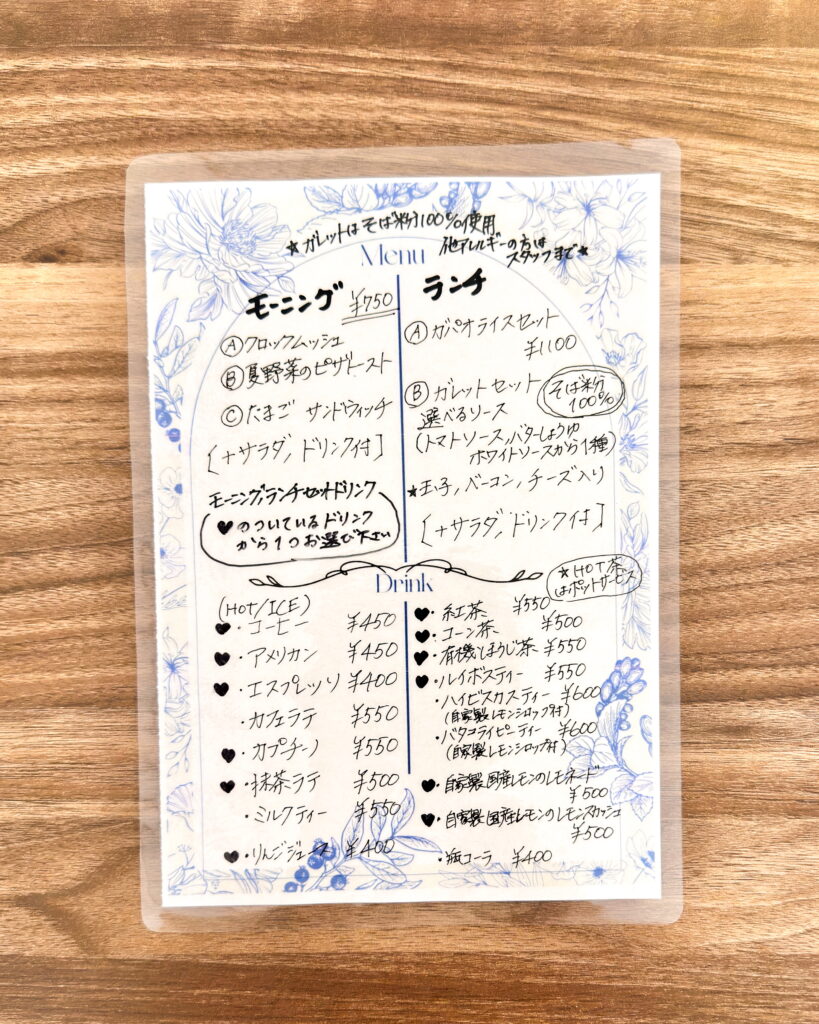 ★ガレットはそば粉100%使用
他アレルギーの方は
スタッフまで★
Menu
モーニング ¥750
Ⓐクロックムッシュ
Ⓑ夏野菜のピザトースト
Ⓒたまご サンドウィッチ
[+サラダ, ドリンク付]
モーニング,ランチセットドリンク
♥のついているドリンク
から1つお選び下さい
ランチ
Ⓐガパオライスセット
¥1100
Ⓑガレットセット
そば粉
100%
選べるソース
(トマトソース,バターしょうゆ
ホワイトソースから1種)
★玉子,ベーコン,チーズ入り
[+サラダ,ドリンク付]
Drink
★HOT茶
はポットサービス
(HOT/ICE)
♥・コーヒー ¥450
♥・アメリカン ¥450
♥・エスプレッソ ¥400
・カフェラテ ¥550
♥・カプチーノ ¥550
♥・抹茶ラテ ¥500
・ミルクティー ¥550
♥・りんごジュース ¥400
♥・紅茶 ¥550
♥・コーン茶 ¥500
♥・有機ほうじ茶 ¥550
♥・ルイボスティー ¥550
・ハイビスカスティー ¥600
(自家製レモンシロップ付)
・バタフライピーティー ¥600
(自家製レモンシロップ付)
♥・自家製国産レモンのレモネード
¥500
♥・自家製国産レモンのレモンスカッシュ
¥500
・瓶コーラ ¥400